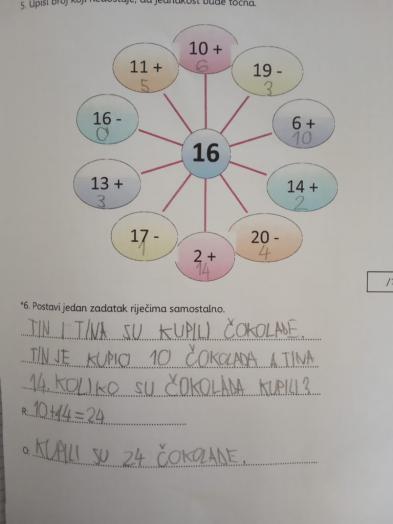 5. Upiši broj koji nedostaje, da jednakost bude točna.
10 +
6
19 -
3
6 +
10
14 +
2
20 -
4
2 +
14
17 -
1
13 +
3
16 -
0
11 +
5
16
*6. Postavi jedan zadatak riječima samostalno.
TIN I TINA SU KUPILI ČOKOLADE.
TIN JE KUPIO 10 ČOKOLADA A TINA
14. KOLIKO SU ČOKOLADA KUPILI?
R: 10+14=24
O: KUPILI SU 24 ČOKOLADE.